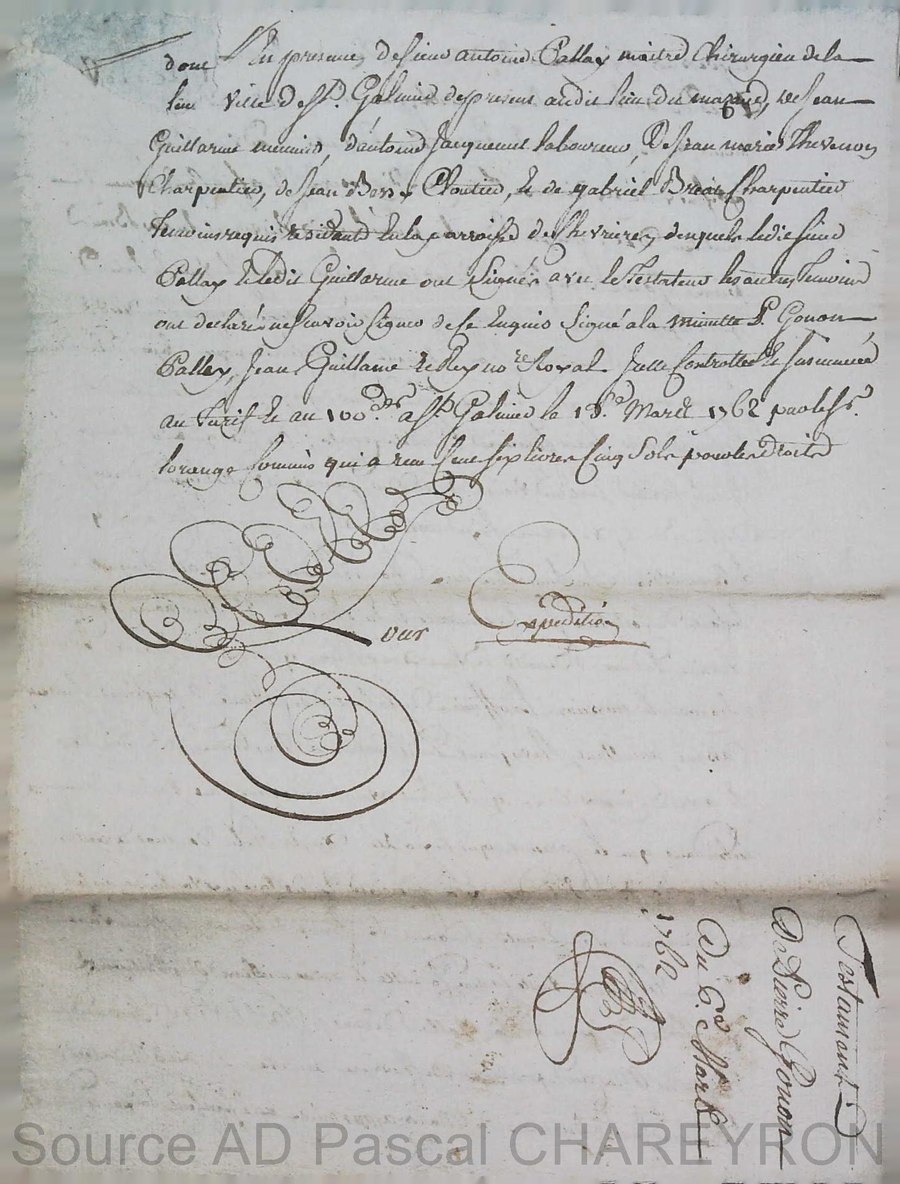 donc En presence de sieur antoine Pallay maitre Chirurgien de la
ville de st. Galmier de present audit lieu du mazand, de Jean
Guillarme menuis, d'antoine Jacquemet laboureur, De Jean marie Thevenon
Charpentier, de Jean Bosse Cloutier, & de gabriel Charpentier
Temoins requis residant en la parroisse de Chevrieres, desquels ledit sieur
Pallay & ledit Guillarme ont signés avec le Testateur les autres Temoins
ont declaré ne scavoir signer de ce enquis Signé a la minutte P. Gonon
Pallay, Jean Guillarme & Rey nore Royal Jcelle Controllée & Insinuée
au Tarif & au 100.d a St. Galmier le Mars 1762 par le Sr.
lorange Commis qui a recu sept livres Cinq Sols pour les Droits
Pour Expedition
Testament
De Pierre Gonon
Du 6.e Mars
1762
Source AD Pascal CHAREYRON